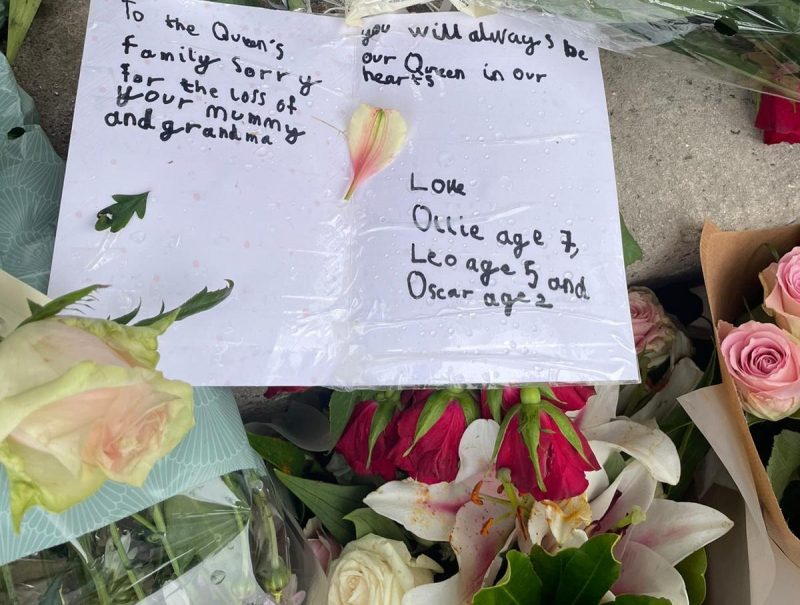 To the Queen's
family Sorry
for the loss of
your mummy
and grandma
you will always be
our Queen in our
hearts
Love
Ollie age 7,
Leo age 5 and
Oscar age 2